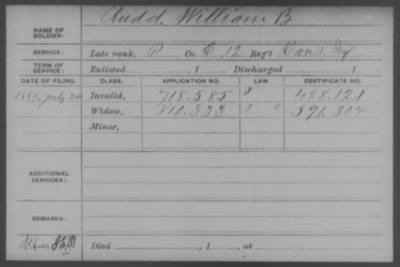 NAME OF SOLDIER: Rudd, William B
SERVICE: Late rank, P Co. E, 12 Reg't Cans. Inf
TERM OF SERVICE: Enlisted , 1 Discharged , 1
DATE OF FILING. CLASS. APPLICATION NO. LAW. CERTIFICATE NO.
1889, July Invalid, 718.585 488.121
Widow, 810.333 391.304
Minor,
ADDITIONAL SERVICES:
REMARKS:
Died , 1 , at